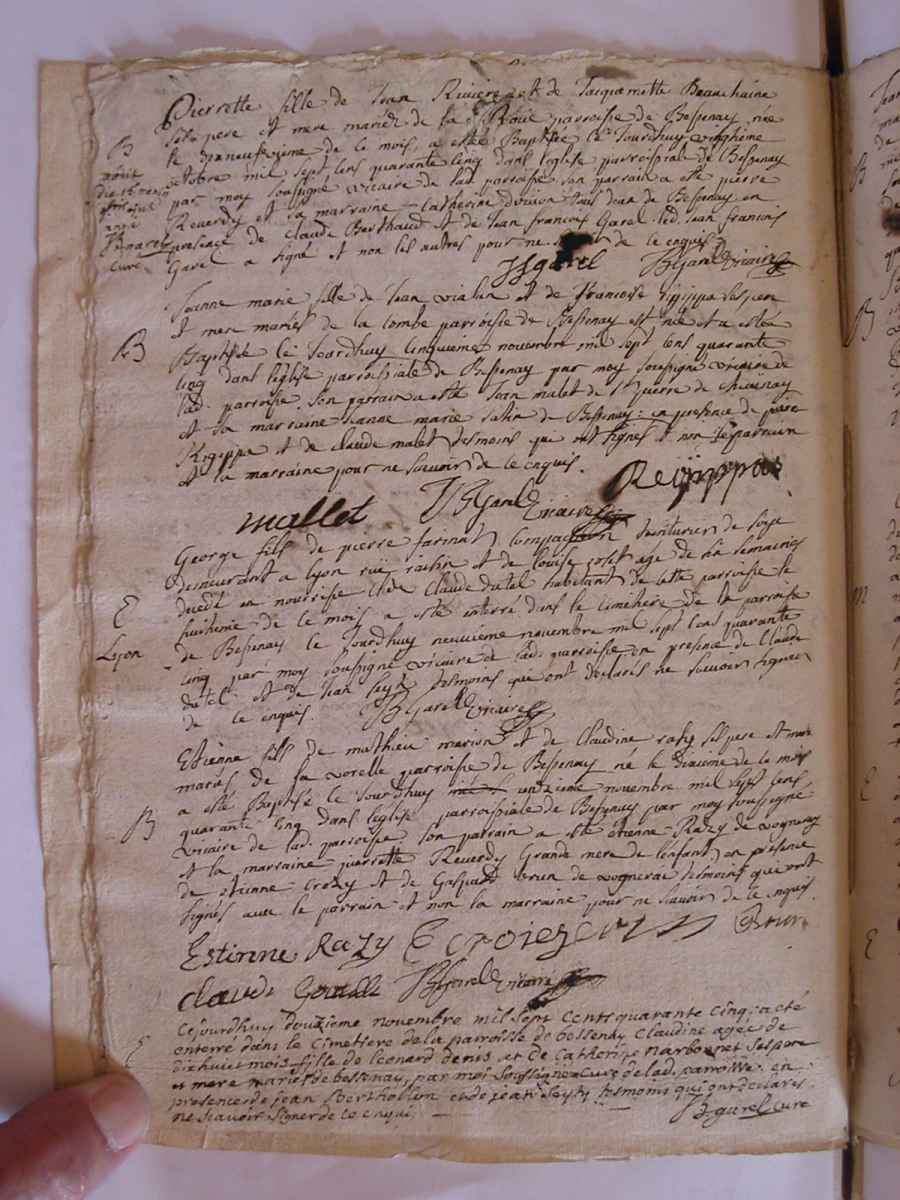 Pierrette fille de Jean Riviere et de Jacquemette Beauchaine
ses pere et mere mariez de la Roüe parroisse de Bessenay née
B
le dixneufvieme de ce mois, a esté Baptisée ce Jourdhuy vingtieme
octobre mil sept cens quarante cinq dans l'eglise parroissiale de Bessenay
par moy soussigné vicaire de lad. parroisse son parrain a esté pierre
Reverdy et sa marraine Catherine tous deux de Bessenay en
presence de Claude Berthaud et de Jean francois Garel led. Jean francois
Garel a signé et non les autres pour ne de ce enquis
curé
JfGarel BGarel vicaire
Jeanne marie fille de Jean vialin et de Francoise Rigippa ses pere
et mere mariés de la Combe parroisse de Bessenay est née et a estée
B
Baptisée ce Jourdhuy cinquieme novembre mil sept cens quarante
cinq dans l'eglise parroissiale de Bessenay par moy soussigné vicaire de
lad. parroisse. son parrain a esté Jean malet de st pierre de
et sa marraine Jeanne marie de Bessenay: en presence de piere
Rigippa et de claude malet tesmoins qui ont signes et non le parrain
et la marraine pour ne scavoir de ce enquis.
mallet BGarel vicaire Regippas
George fils de pierre farinat compagnon teinturier de soye
demeurant a Lyon rüe raisin et de louise age de six semaines
decedé en nourrisse chez Claude dutel habitant de cette parroisse le
E
huitieme de ce mois a esté interré dans le cimetiere de la parroisse
Lyon
de Bessenay le Jourdhuy neuvieme novembre mil sept cens quarante
cinq par moy soussigné vicaire de lad. parroisse en presence de Claude
dutel et de Jean tesmoins que ont declarés ne scavoir signer
de ce enquis. BGarel vicaire
Etienne fils de mathieu marion et de Claudine razy ses pere et mere
mariés de la vorelle parroisse de Bessenay né le dixieme de ce mois
a esté Baptisé ce Jourdhuy unzieme novembre mil sept cens
B
quarante cinq dans l'eglise parroissiale de Bessenay par moy soussigné
vicaire de lad. parroisse. son parrain a esté etienne Razy de vogneray
et la marraine pierrette Reverdy Grande mere de l'enfant, en presence
de etienne crozy et de Gaspard brun de vognerai tesmoins qui ont
signés avec le parrain et non la marraine pour ne scavoir de ce enquis.
Estienne Razy E Brun
claude BGarel vicaire
cejourdhuy douzieme novembre mil sept cents quarante cinq a eté
E
enterré dans le cimetiere de la parroisse de bessenay claudine agée de
dixhuict mois fille de leonard denis et de Catherine narbonnet ses pere
et mere mariés de bessenay, par moi soussigné curé de lad. parroisse en
presence de jean Berthollon et de jean tesmoins qui ont declarés
ne scavoir signer de ce enqui
BGarel curé